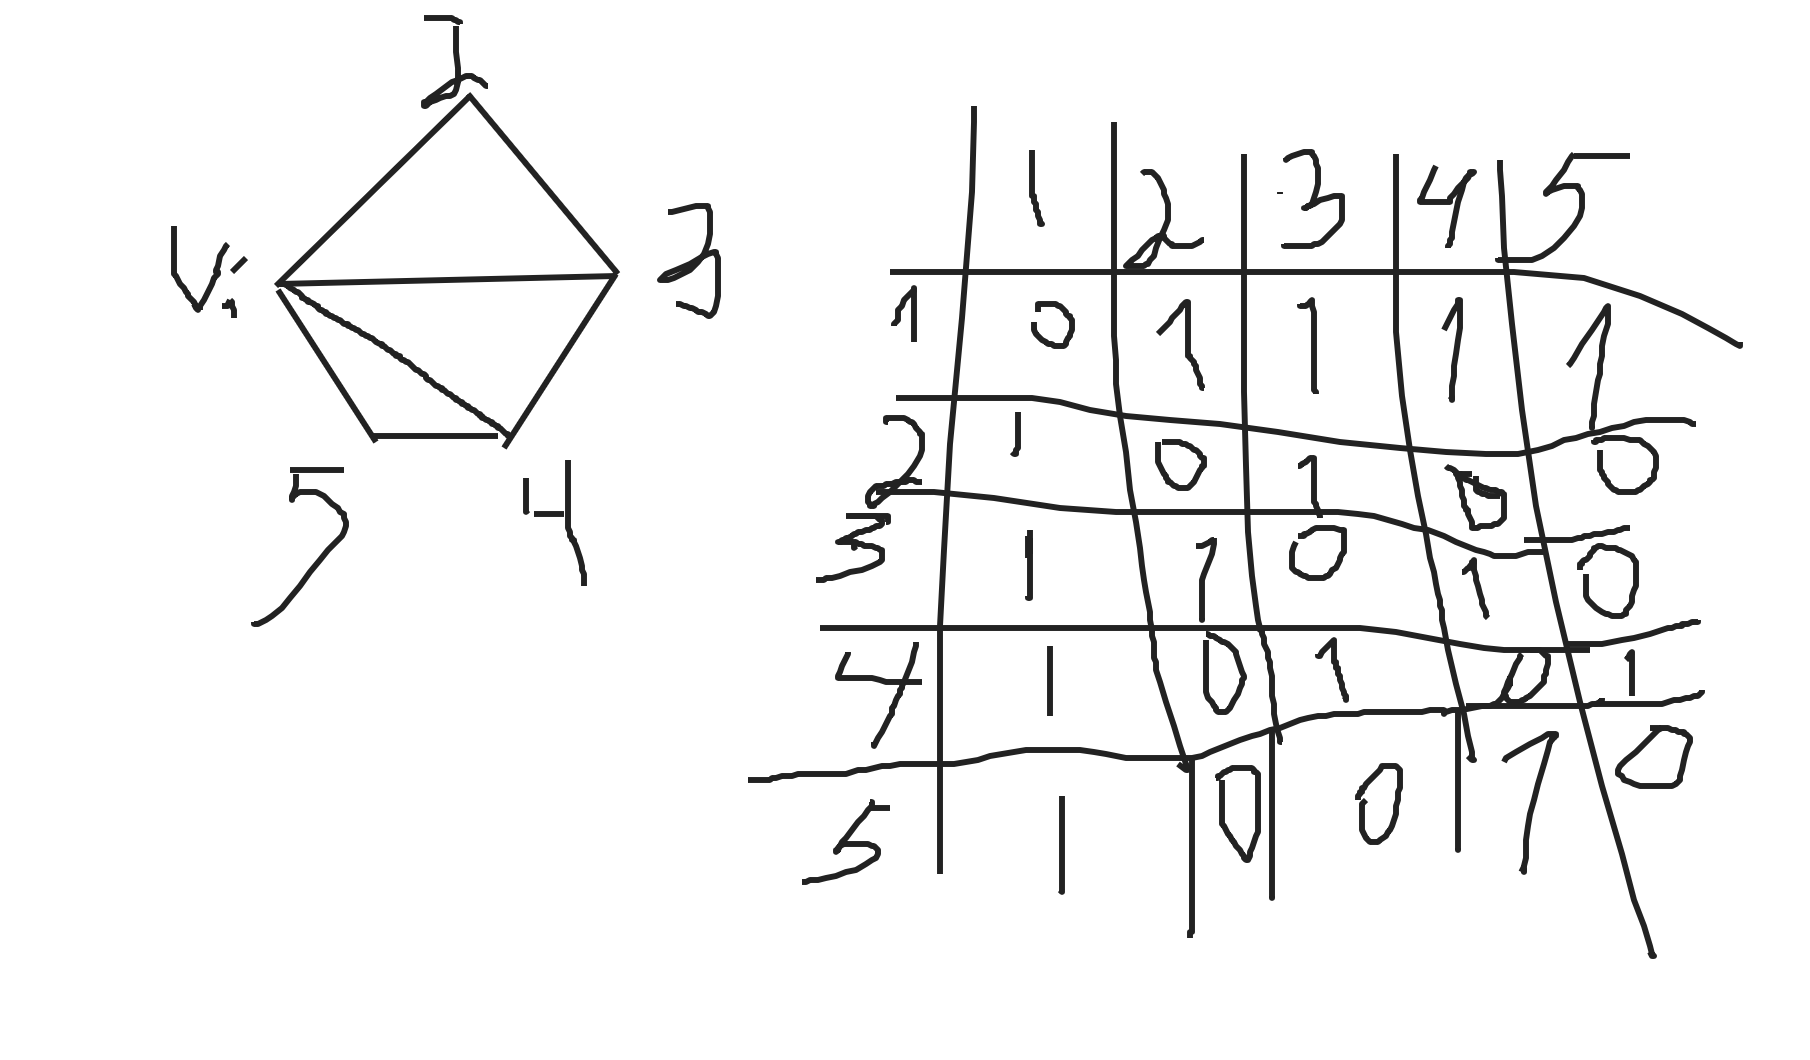 2
V1
3
5 4
1 2 3 4 5
1 0 1 1 1 1
2 1 0 1 0 0
3 1 1 0 1 0
4 1 0 1 0 1
5 1 0 0 1 0